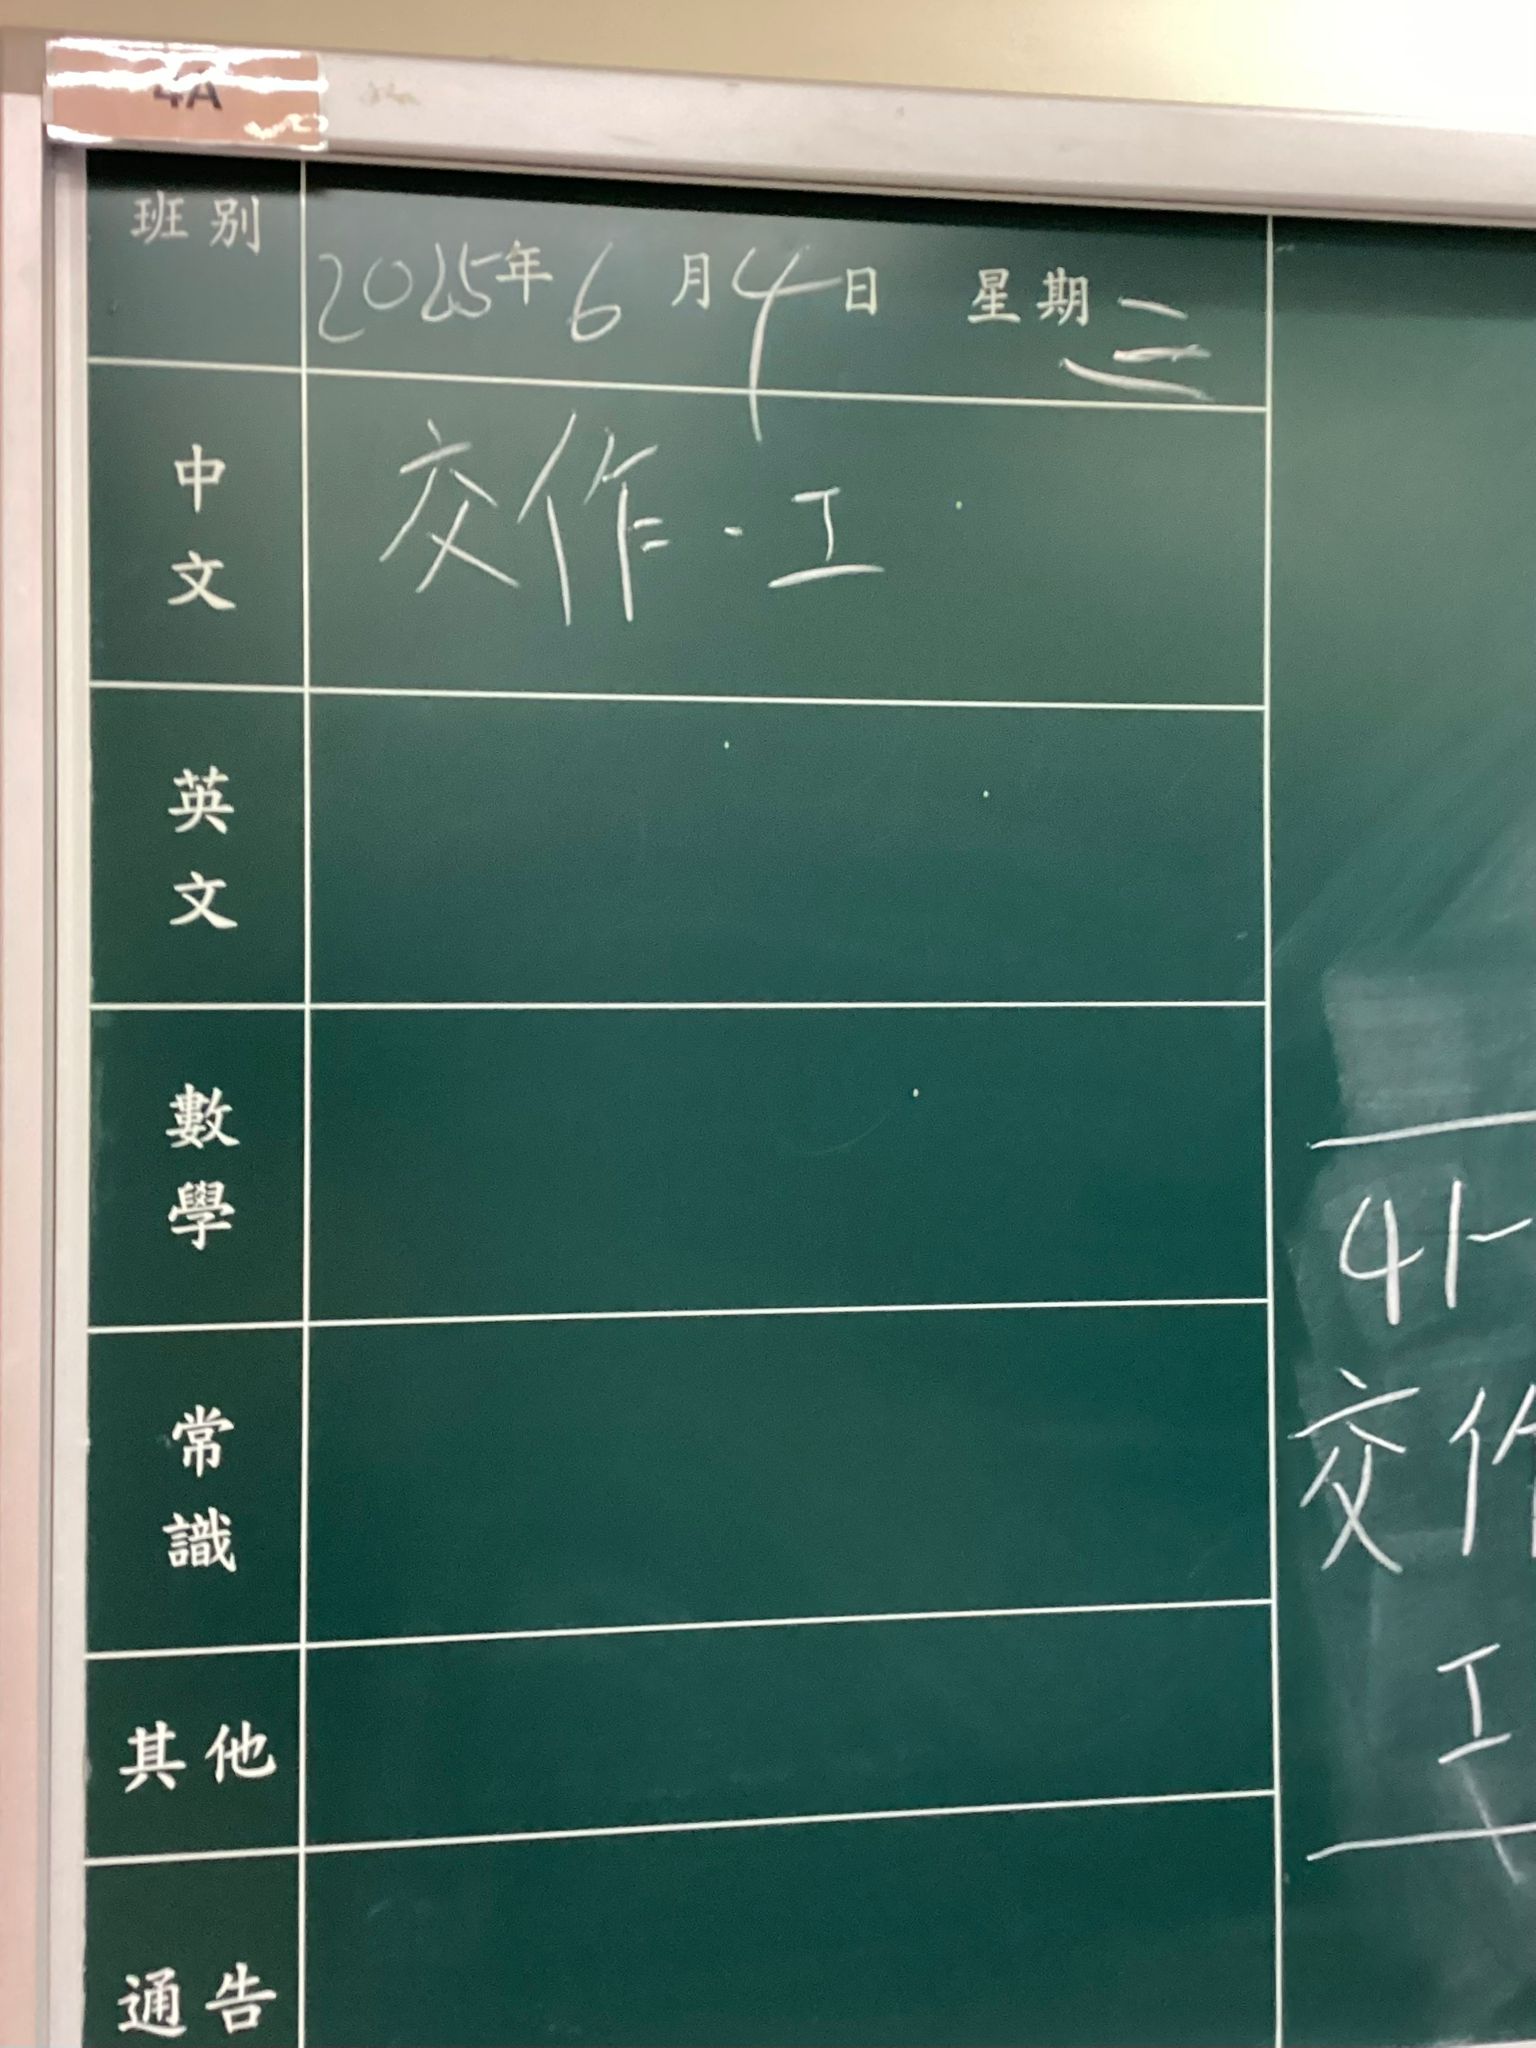 4A
班别
2025年6月4日 星期三
中文
交作．工
英文
數學
常識
其他
通告
4
交作
工